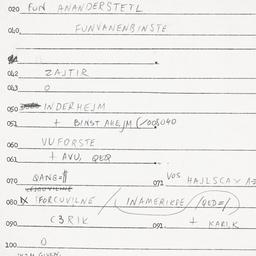 020 FUN ANANDERSTETL
040 FUNVANENBINSTE
042 ZAJTIR
043 O
050 INDERHEJM
051 + BINST AHEJM (/003,040
060 VUFORSTE
061 + AVU, QEQ
070 QANG= 071 VOS HAJLSCAX
080 IFORCUVILNE INAMERIKDE /QED=/
090 C3RIK 091 + KARIK
100 O